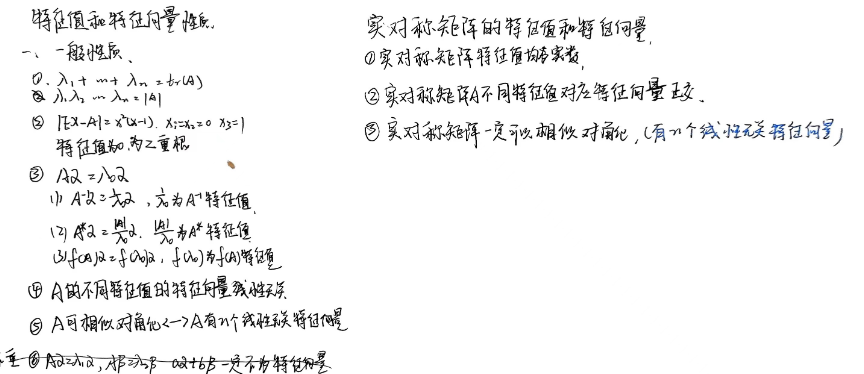 特征值和特征向量性质.
一、一般性质、
①. λ₁+…+λₙ=tr(A)
② λ₁λ₂…λₙ=|A|
② |Ex-A|=x²(x-1). x₁=x₂=0 x₃=1
特征值为0,为二重根
③ Aα=λ₀α
(1) A⁻¹α=1/λ₀α , 1/λ₀为A⁻¹特征值.
(2) A*α=|A|/λ₀α. |A|/λ₀为A*特征值
(3) f(A)α=f(λ₀)α, f(λ₀)为f(A)特征值
④ A的不同特征值的特征向量线性无关
⑤ A可相似对角化<—>A有n个线性无关特征向量
⑥ Aα=λ₁α, Aβ=λ₂β aα+bβ一定不为特征向量
实对称矩阵的特征值和特征向量.
①实对称矩阵特征值均为实数.
②实对称矩阵A不同特征值对应特征向量正交.
③实对称矩阵一定可以相似对角化,(有n个线性无关特征向量)